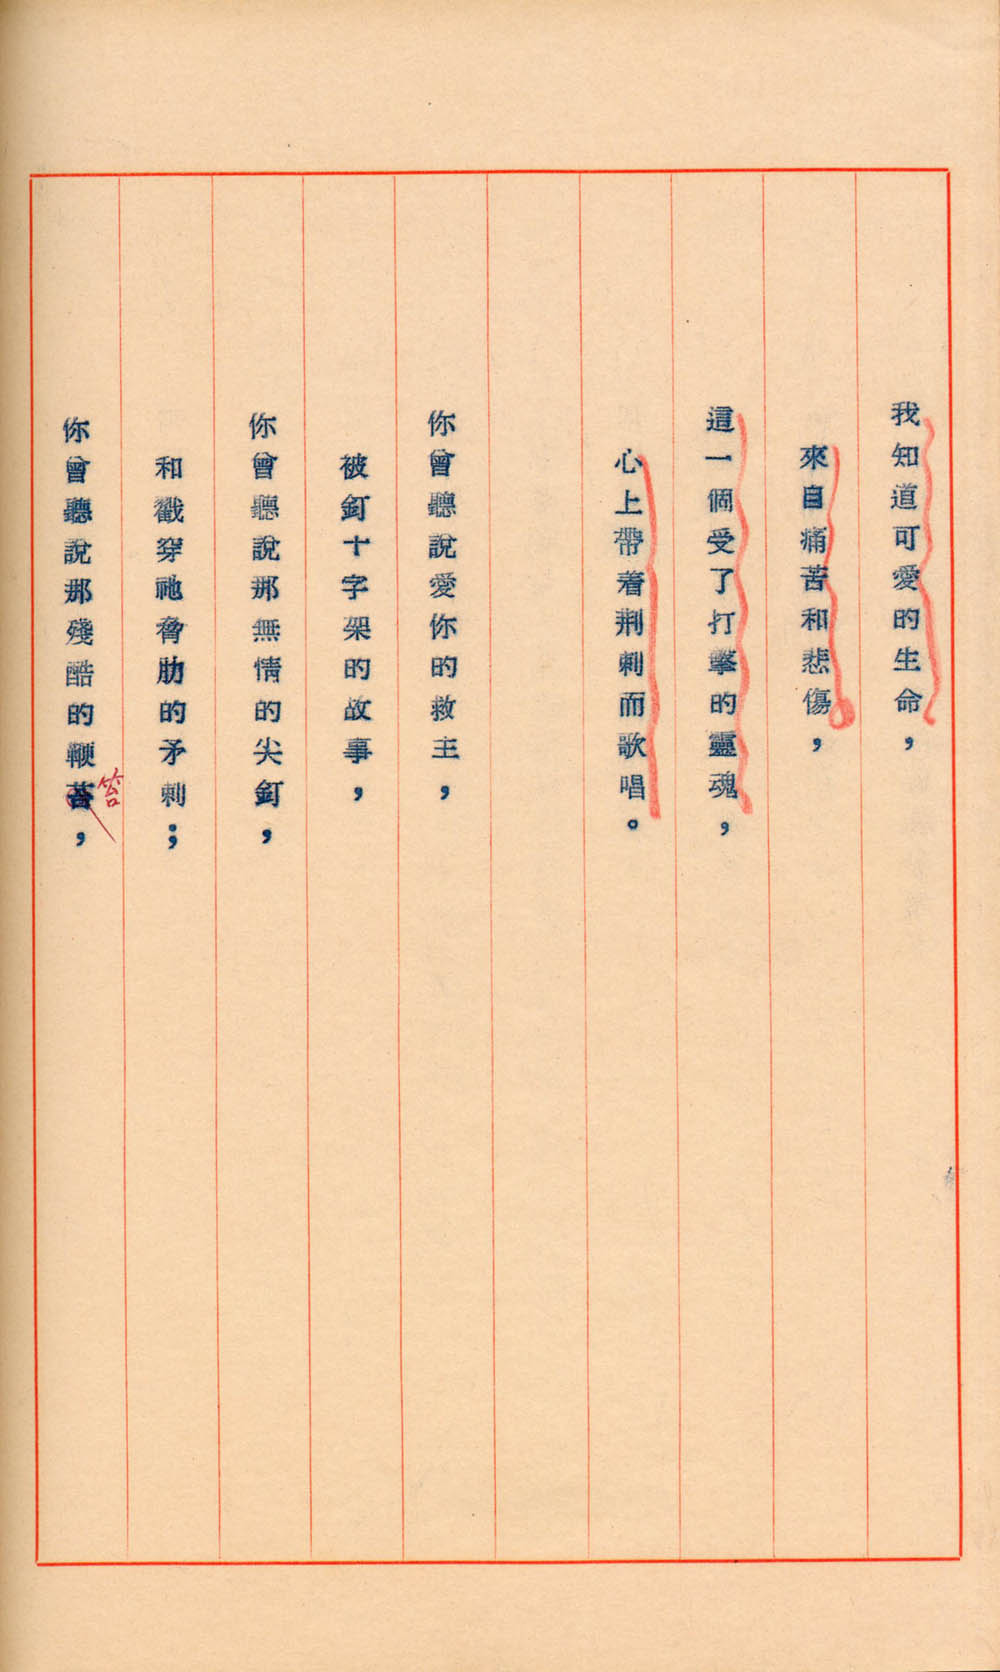 我知道可愛的生命，
來自痛苦和悲傷，
這一個受了打擊的靈魂，
心上帶着荆刺而歌唱。
你曾聽說愛你的救主，
被釘十字架的故事，
你曾聽說那無情的尖釘，
和戳穿祂脅肋的矛刺；
你曾聽說那殘酷的鞭苔，
笞